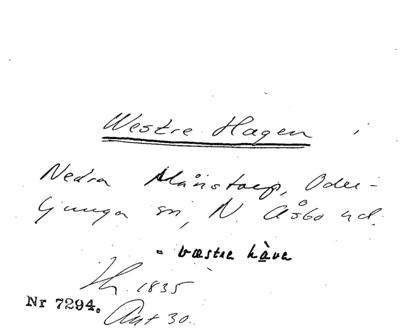 Westre Hagen i
Nedra Månstorp, Oder-
ljunga sn, N. Åsbo hd.
- væstre hàva
1835
Nr 7294. Akt 30.